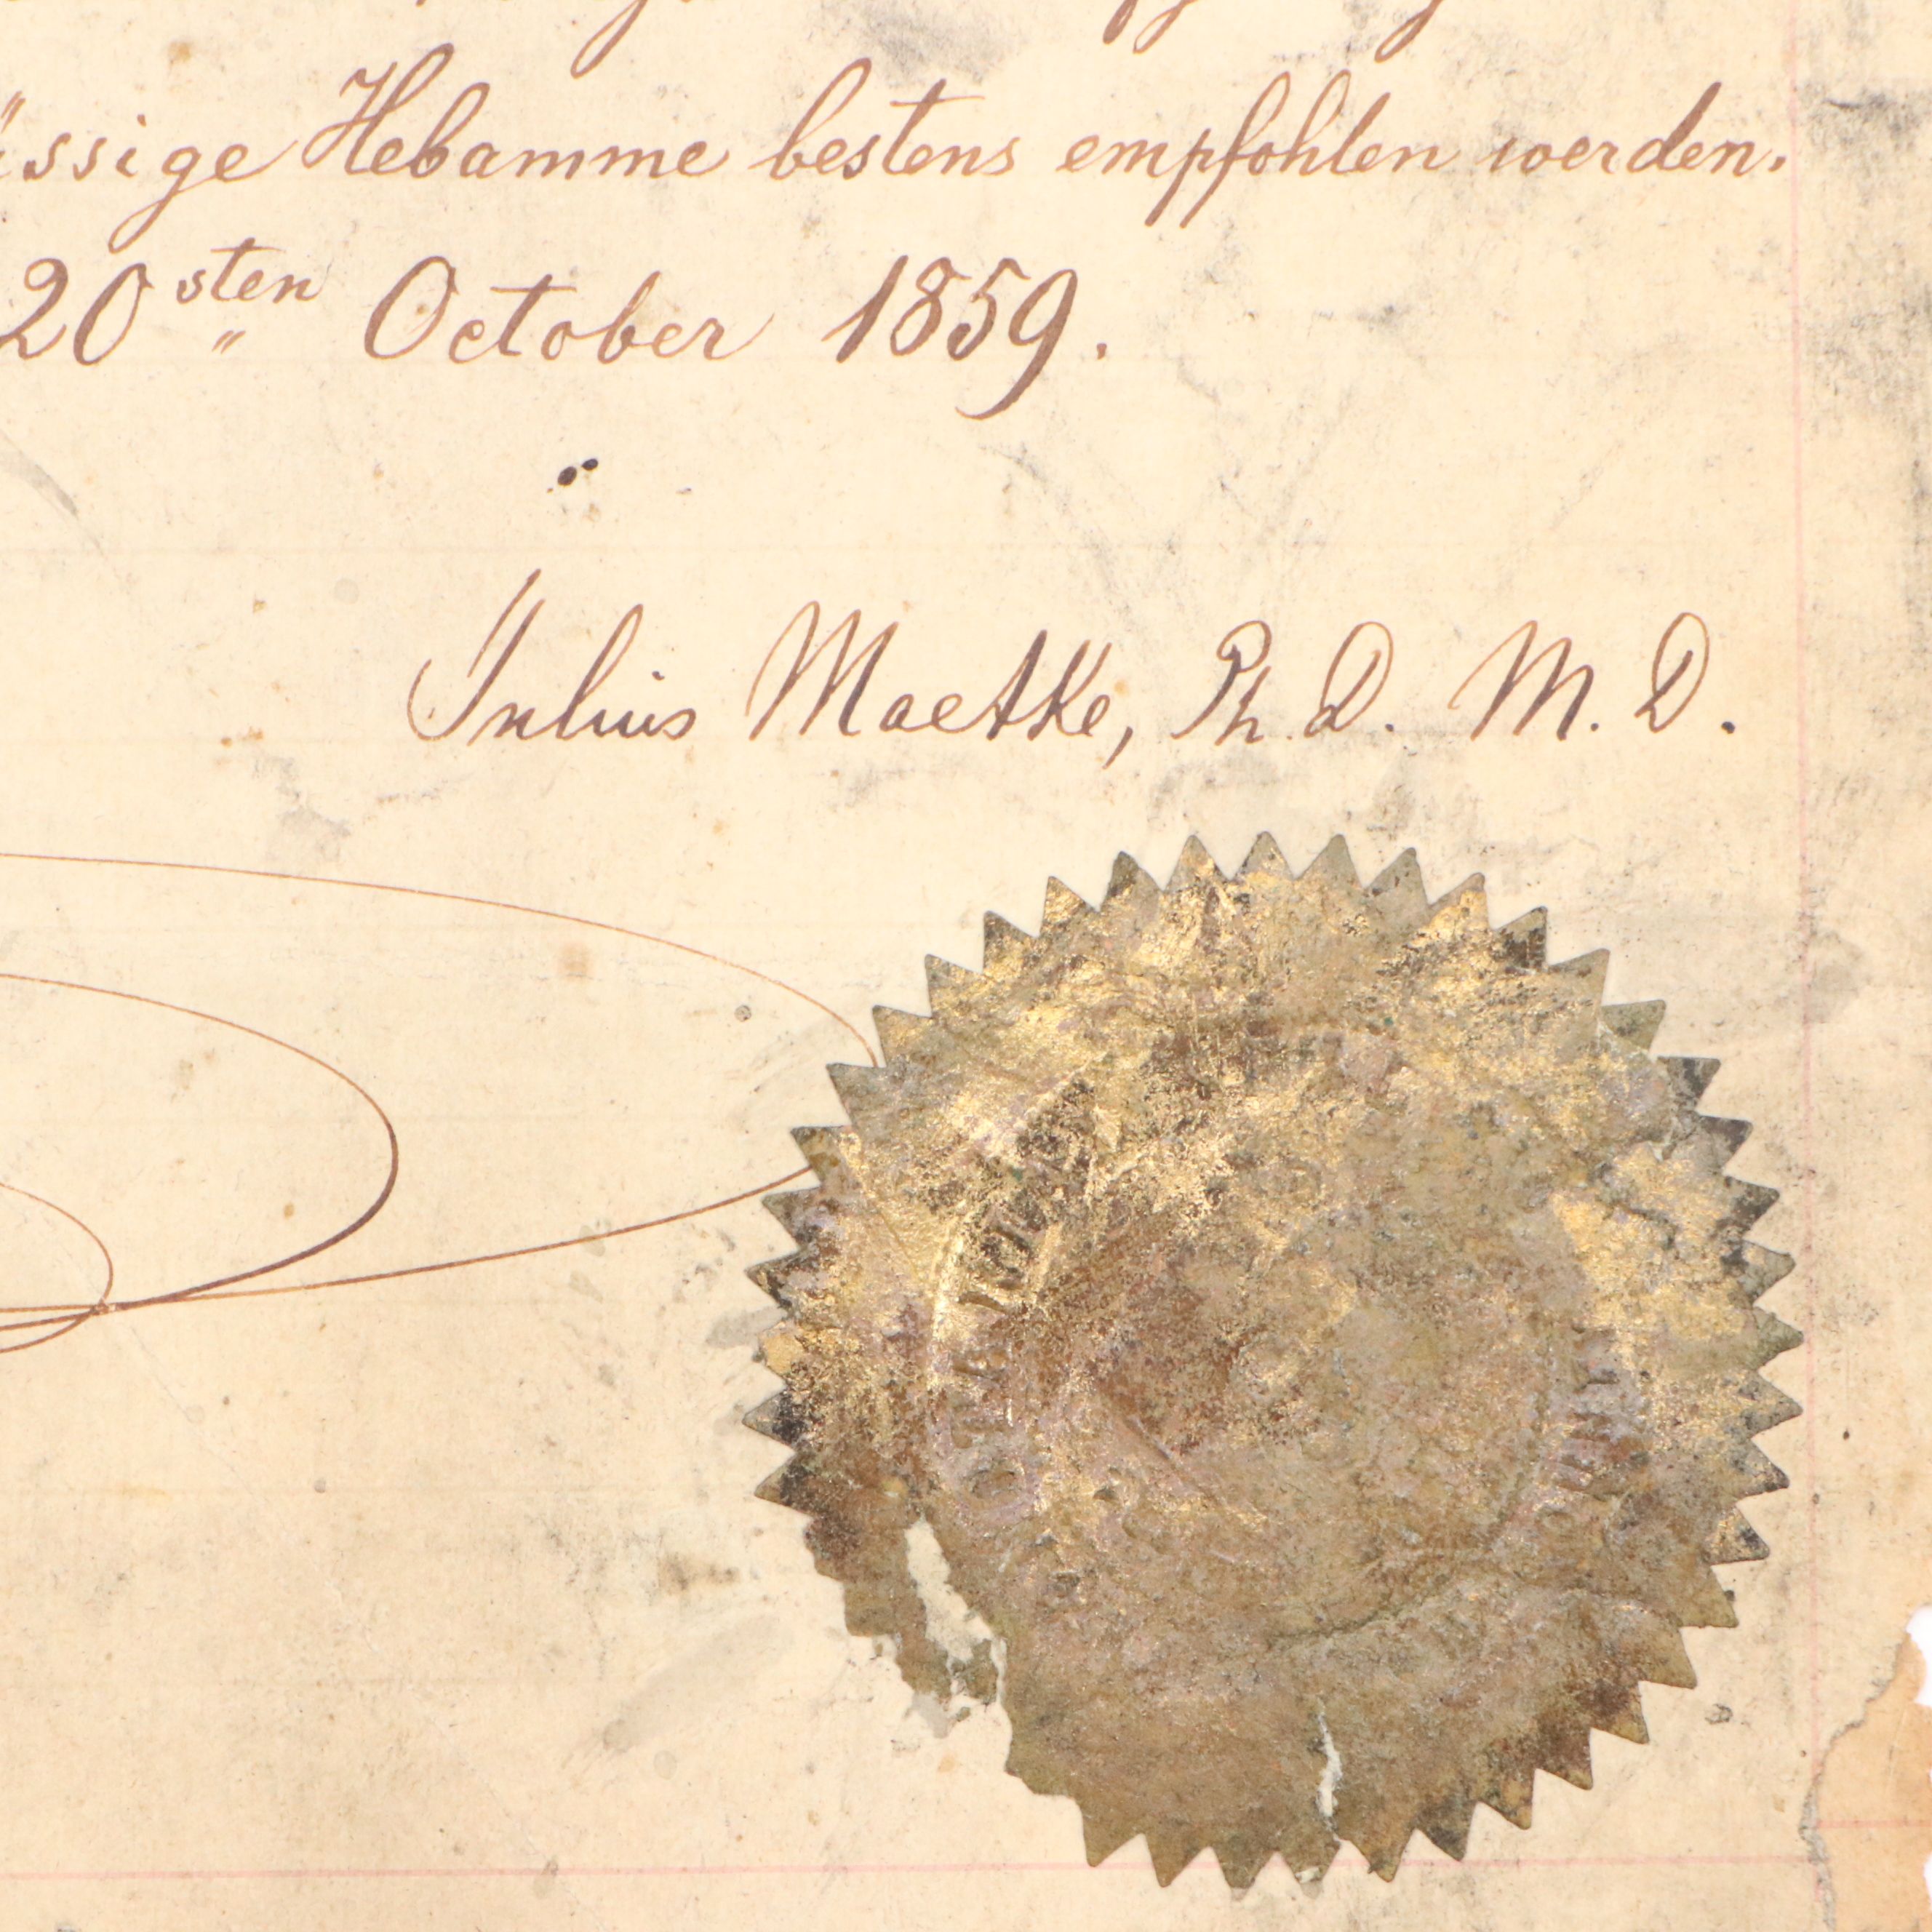 üssige Hebamme bestens empfohlen werden.
20sten October 1859.
Julius Maetke, Ph. D. M. D.